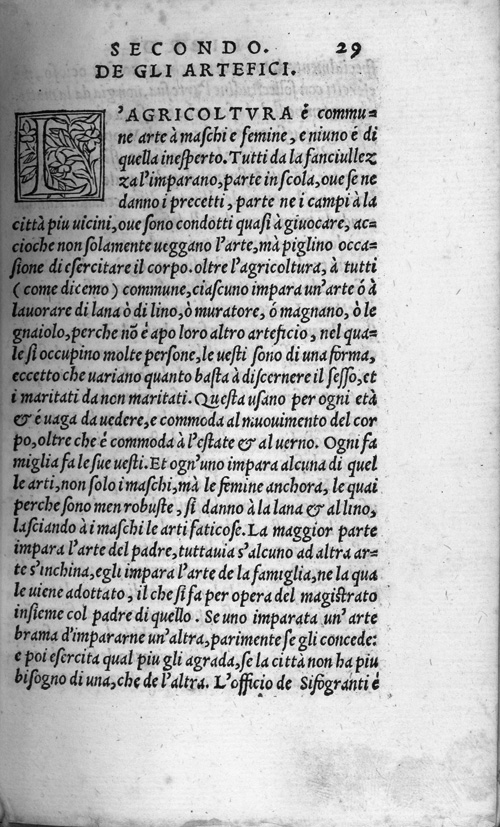 SECONDO. 29
DE GLI ARTEFICI.
L'AGRICOLTVRA é commu=
ne arte à maſchi e femine, e niuno é di
quella ineſperto. Tutti da la fanciullez
za l'imparano, parte in ſcola, oue ſe ne
danno i precetti, parte ne i campi à la
città piu uicini, oue ſono condotti quaſi à giuocare, ac=
cioche non ſolamente ueggano l'arte, mà piglino occa=
ſione di eſercitare il corpo. oltre l'agricoltura, à tutti
(come dicemo) commune, ciaſcuno impara un'arte ó à
lauorare di lana ò di lino, ò muratore, ó magnano, ò le
gnaiolo, perche nõ é apo loro altro arteficio, nel qua=
le ſi occupino molte perſone, le ueſti ſono di una forma,
eccetto che uariano quanto baſta à diſcernere il ſeſſo, et
i maritati da non maritati. Queſta uſano per ogni età
& é uaga da uedere, e commoda al muouimento del cor
po, oltre che é commoda à l'eſtate & al uerno. Ogni fa
miglia fa le ſue ueſti. Et ogn'uno impara alcuna di quel
le arti, non ſolo i maſchi, mà le femine anchora, le quai
perche ſono men robuſte, ſi danno à la lana & al lino,
laſciando à i maſchi le arti faticoſe. La maggior parte
impara l'arte del padre, tuttauia s'alcuno ad altra ar=
te s'inchina, egli impara l'arte de la famiglia, ne la qua
le uiene adottato, il che ſi fa per opera del magiſtrato
inſieme col padre di quello. Se uno imparata un'arte
brama d'impararne un'altra, parimente ſe gli concede:
e poi eſercita qual piu gli agrada, ſe la città non ha piu
biſogno di una, che de l'altra. L'officio de Sifogranti é